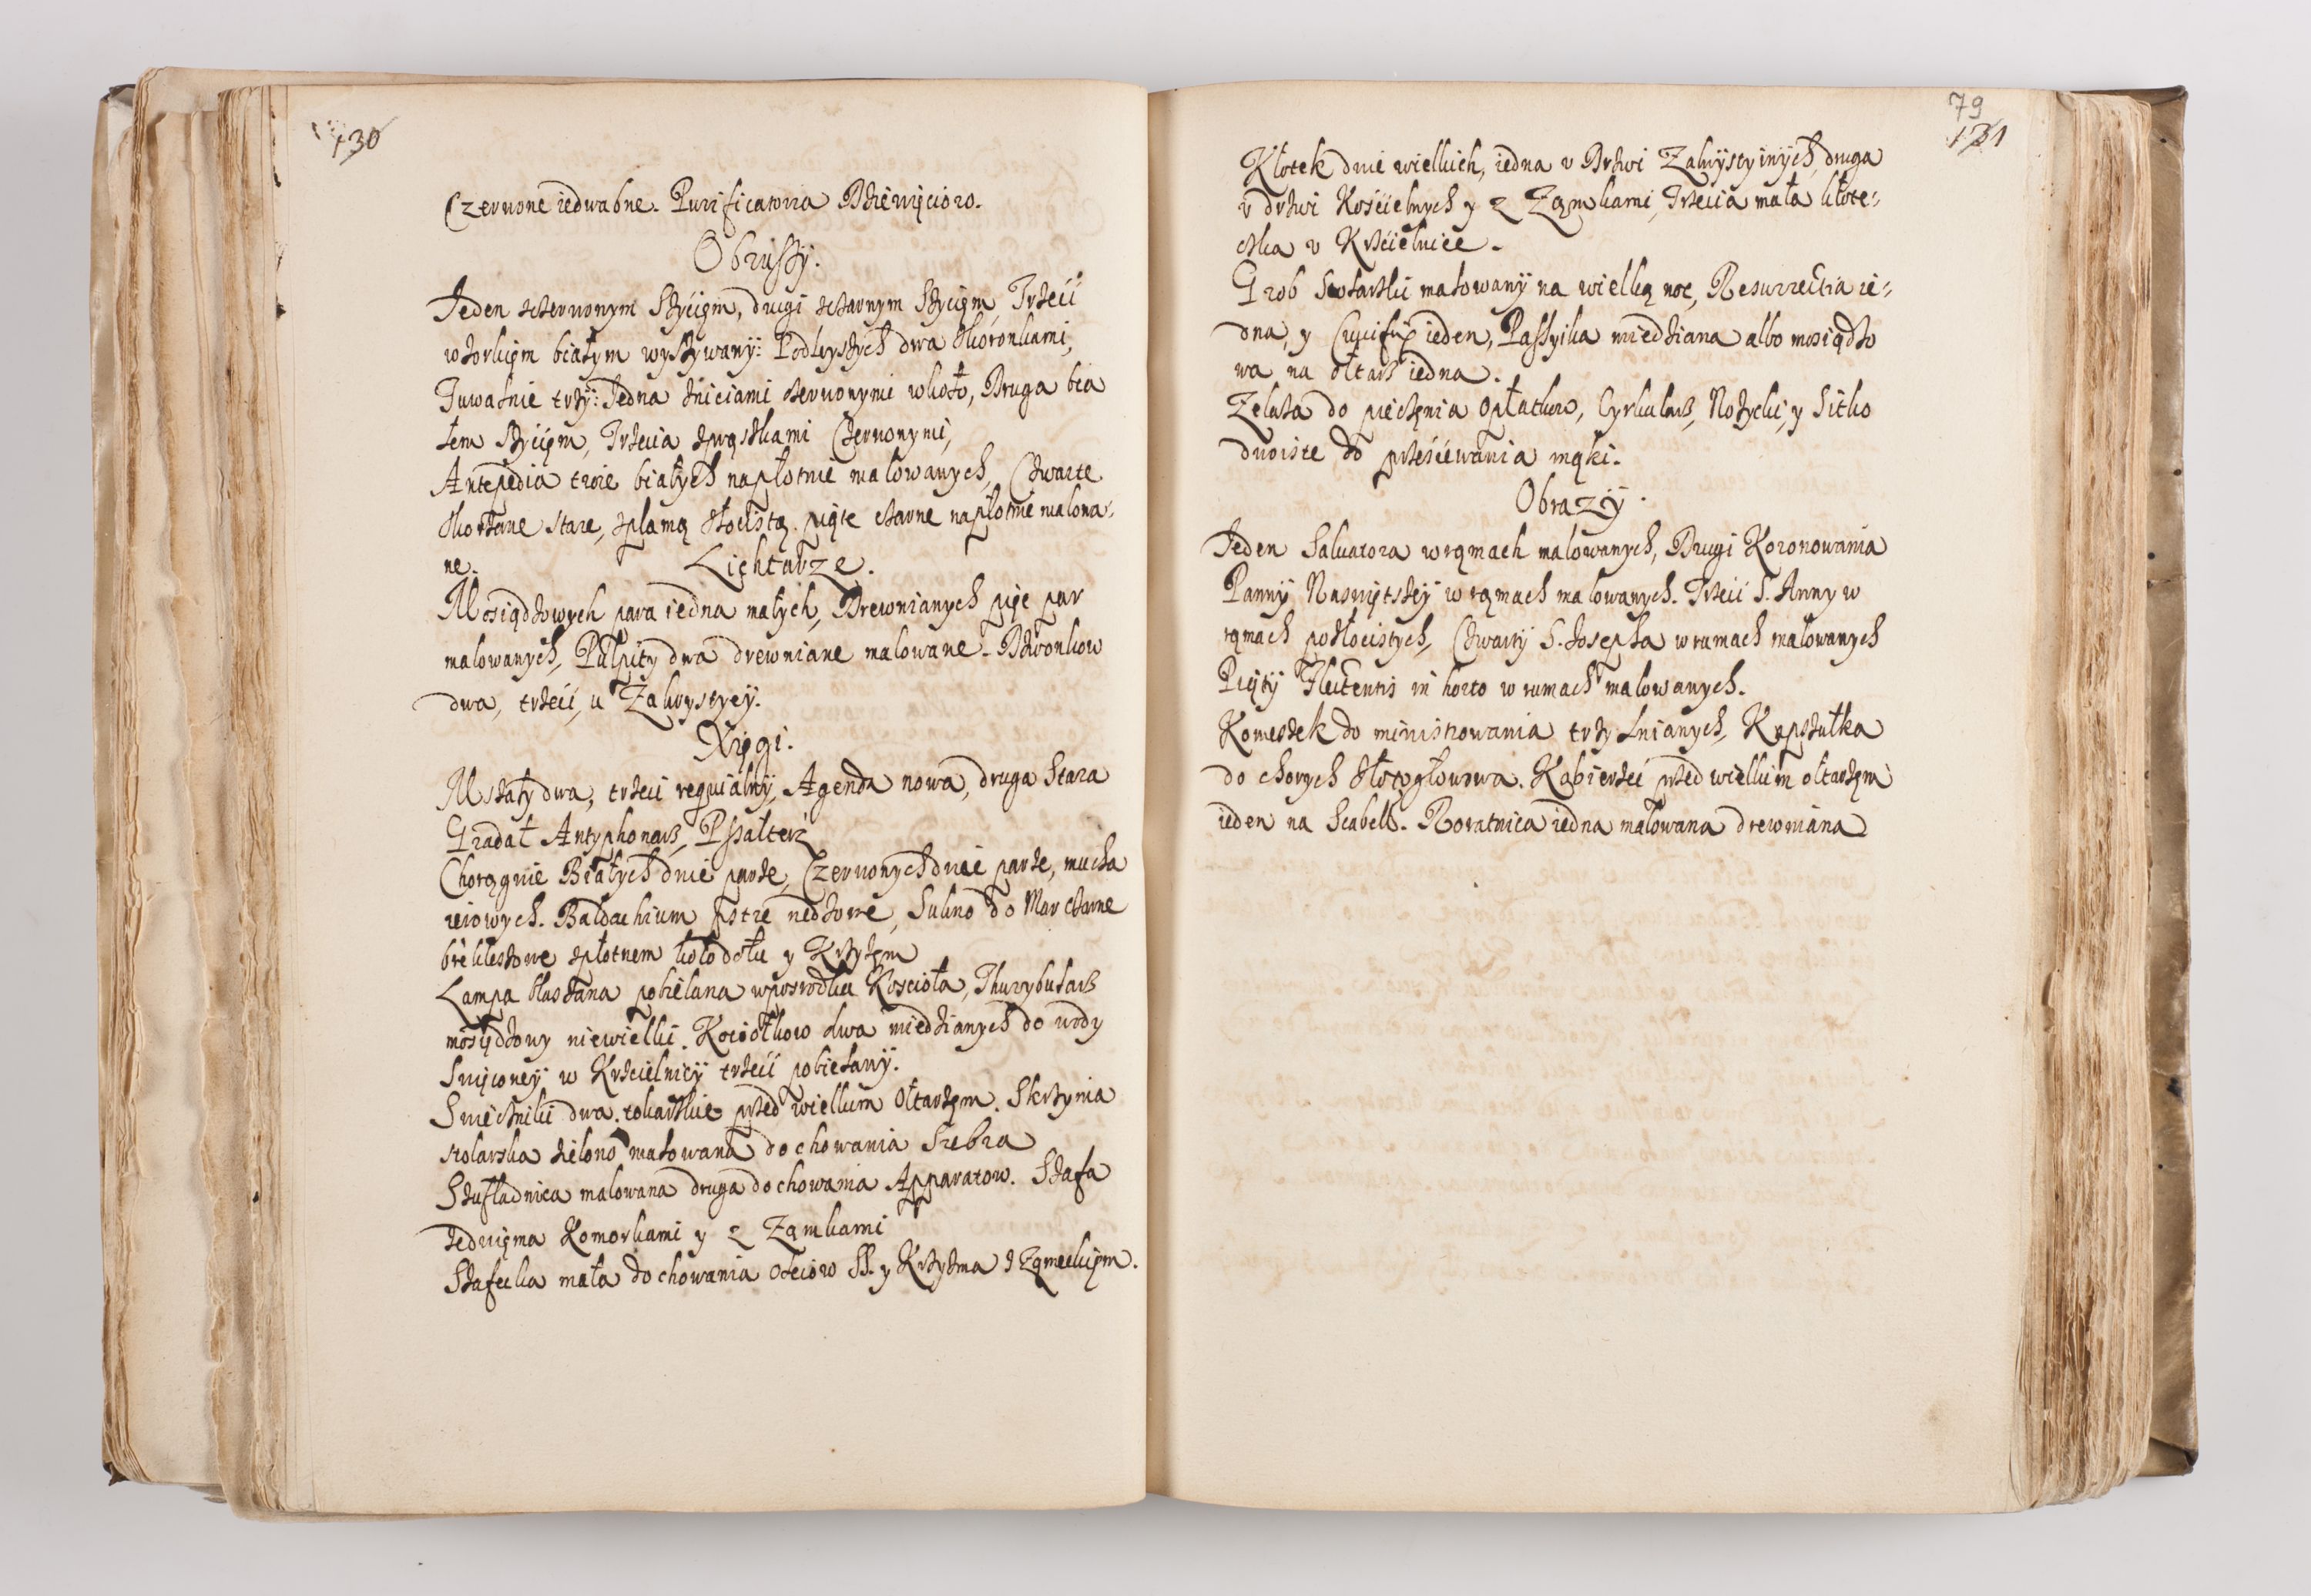 130
Czerwone iedwabne. Purificatoria Dziewięcioro.
Obrussÿ.
Jeden zczerwonym Szÿciem, drugi zczarnym Szyciem, Trzeci
wzorkiem białym wyszywanÿ: Podłvyszych dwa zkoronkami,
Tuwalnie trzÿ: Jedna zniciami czerwonymi wkoło, Druga bia
łem Szyciem, Trzecia zpręszkami Czerwonymi,
Antepedia troie białych napłotnie malowanych, Czwarte
skorzane stare, zplamą złocistą. piąte czarne napłotnie malowa-
ne.
Lichtarze.
Mosiądzowych para iedna małych, Drewnianych pięc par
malowanych, Pulpity dwa drewniane malowane. Dzwonkow
dwa, trzeci, u Zakrystyeÿ.
Xięgi.
Mszały dwa, trzeci requialnÿ, Agenda nowa, druga Stara
Gradał Antyphonarz, Pssałterz
Chorągwie Białych dwie parze, Czerwonych dwie parze, mucha
ierowych. Baldachium pstre nedzowe, Sukno do Mar czarne
breklestowe zpłotnem koło dołu y Krzyżem
Lampa blaszana pobielana wposrodku Koscioła, Thurybularz
mosiądzowy niewielki. Kociołkow dwa miedzianych do wody
Swięconeÿ w Krzcielnicÿ trzeci pobielanÿ.
Swiecznik dwa tokarskie przed wielkim Ołtarzem. Skrzynia
stolarska zielono malowana do chowania Srebra
Szufladnica malowana druga do chowania Apparatow. Szafa
zedwiema Komorkami y z Zamkami
Szafecka mała do chowania Oleiow SS. y Krzyżma z Zameckiem.
79
131
Kłotek dwie wielkich, iedna v Drzwi Zakrÿstyinÿch, druga
v drzwi Koscielnych y z Zamkami, Trzecia mała kłote-
czka v Krzcielnice.
Grob Stolarski malowany na wielką noc, Resurrectia ie-
dna, y Crucifix ieden, Passyika miedziana albo mosiądzo
wa na ołtarz iedna.
Zelaza do pieczenia Opłatkow, Cyrkularz, Nozycki, y Sitko
dwoiste do przesiewania mąki.
Obrazÿ.
Jeden Salvatora wramach malowanych, Drugi Koronowania
Pannÿ Naswiętszeÿ w ramach malowanych. Trzeci S. Anny w
ramach pozłocistych, Czwarty S. Josepha w ramach malowanych
Piątÿ Flectentis in horto w ramach malowanych.
Komeszek do ministrowania trzy Lnianych, Kapszułka
do chorych złotogłowowa. Kobierzec przed wielkim ołtarzem
ieden na Scabell. Roratnica iedna malowana drewniana